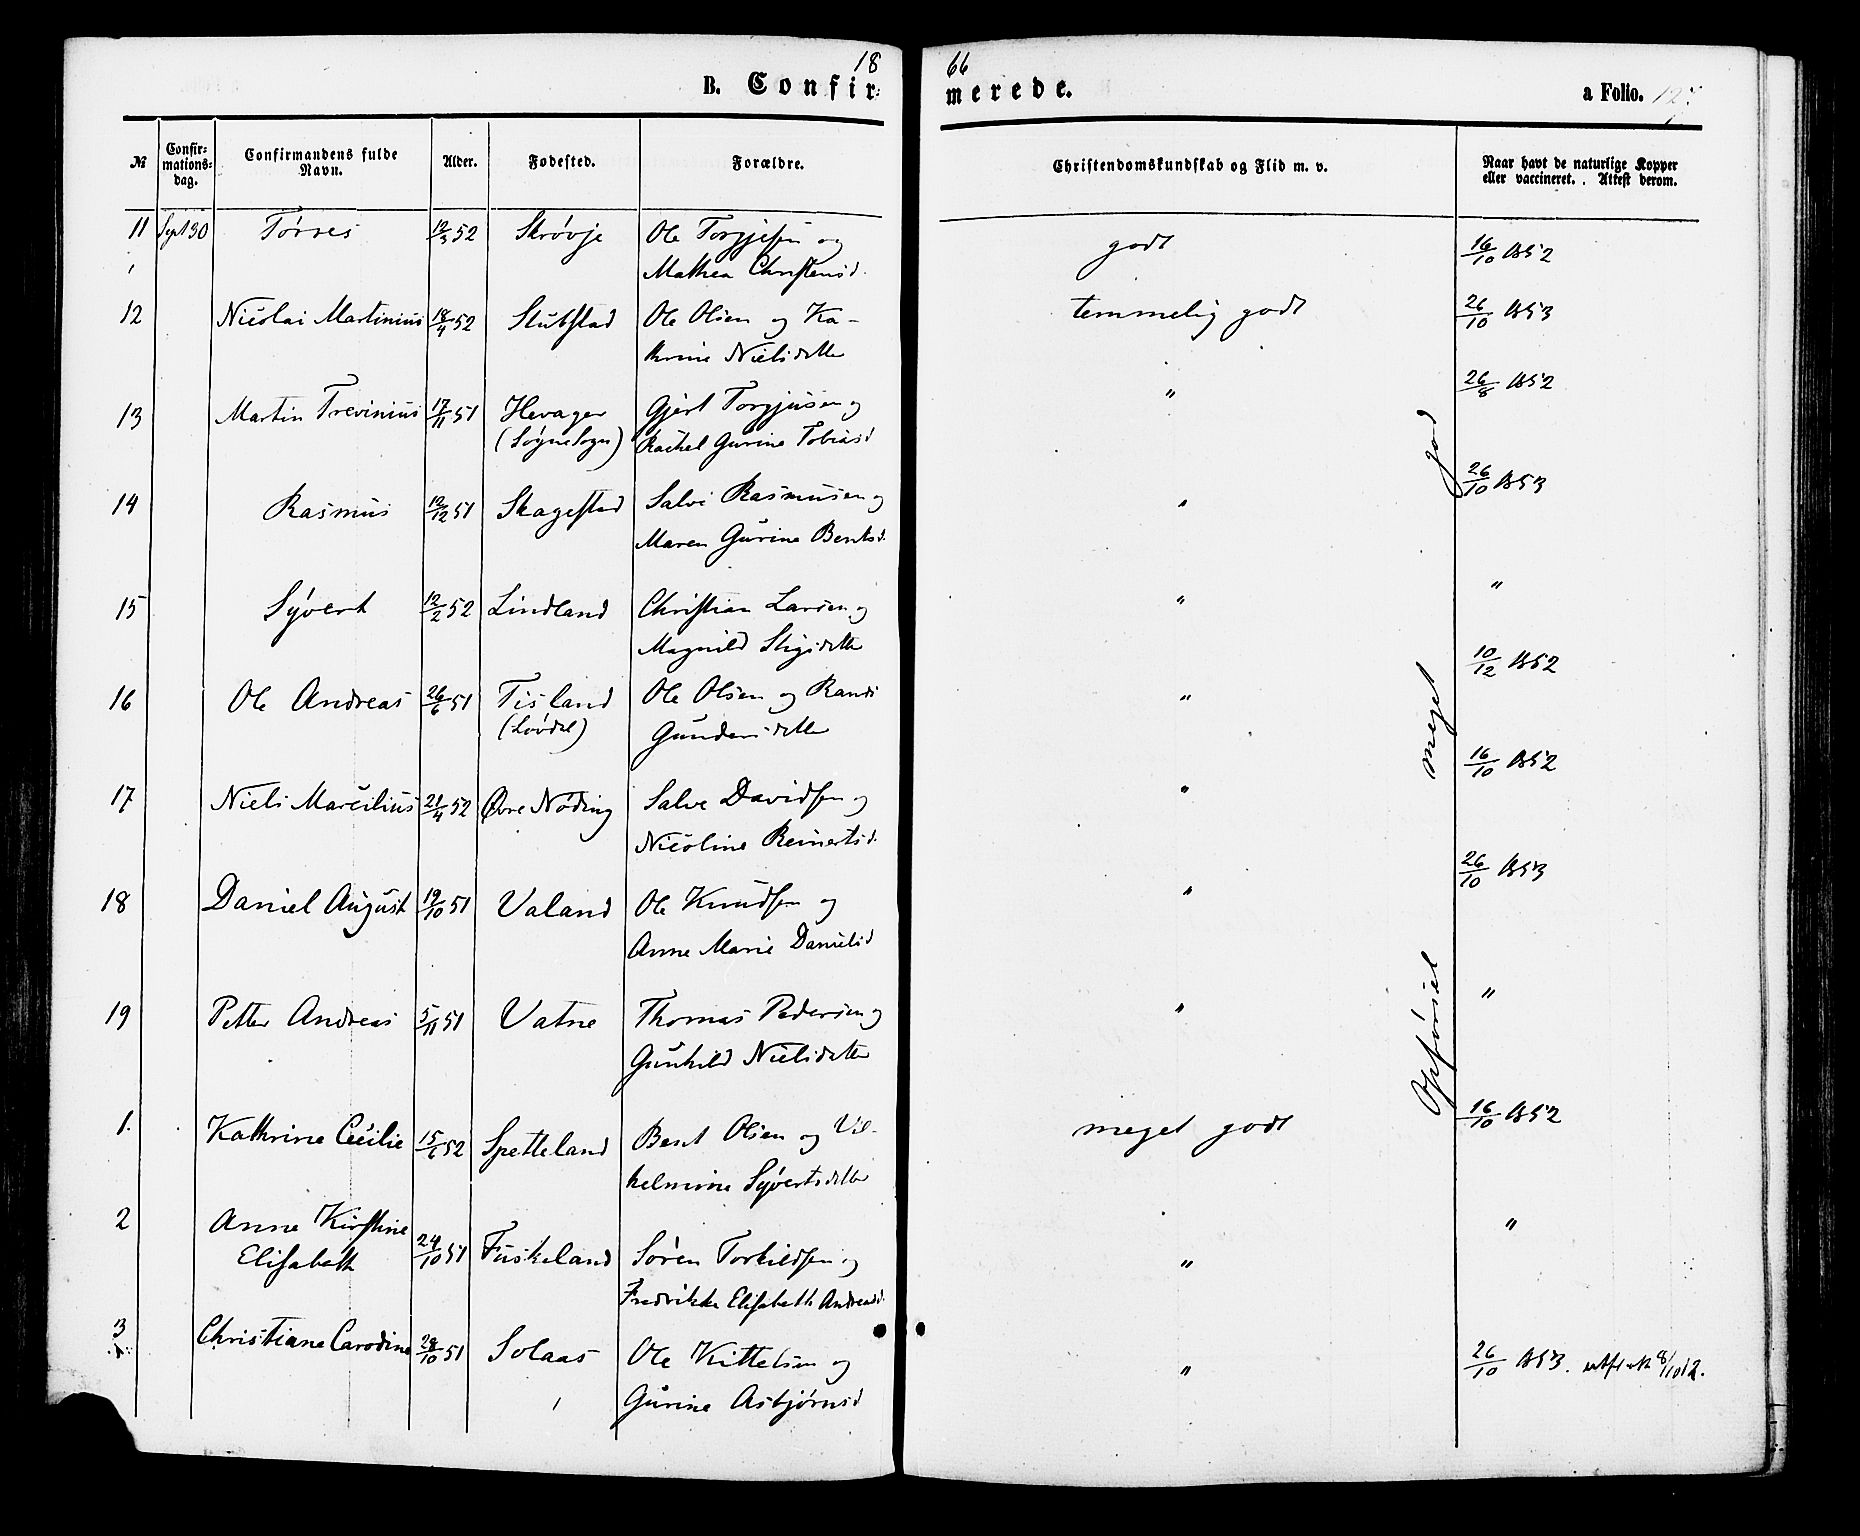 18 66
B. Confirmerede. a Folio. 127
№ Confirmations-dag. Confirmandens fulde Navn. Alder. Fødested. Forældre. Christendomskundskab og Flid m. v. Naar havt de naturlige Kopper eller vaccineret. Attest derom.
11 Sept 30 Tørres 12/3 52 Skrøvje Ole Torgjesen og godt 16/10 1852
Mathea Christensd.
12 Nicolai Martinius 18/4 52 Stubstad Ole Olsen og Ka- temmelig godt 26/10 1853
thrine Nielsdatter
13 Martin Trevinius 17/11 51 Hevager Gjert Torgjusen og " 26/8 1852
(Søgne Sogn) Rachel Gurine Tobiasd
14 Rasmus 12/12 51 Skagestad Salve Rasmusen og " 26/10 1853
Maren Gurine Bentsd.
15 Syvert 12/2 52 Lindland Christian Larsen og " "
Magnild Stigsdatter
16 Ole Andreas 26/6 51 Tisland Ole Olsen og Randi " 10/12 1852
(Løvdal) Gundersdatter
17 Niels Marcilius 21/4 52 Øvre Nøding Salve Davidsen og " 16/10 1852
Nicoline Reinertsd.
18 Daniel August 19/10 51 Valand Ole Knudsen og " 26/10 1853
Anne Marie Danielsd
19 Petter Andreas 5/11 51 Vatne Thomas Pedersen og " "
Gunhild Nielsdatter
1. Kathrine Cecilie 15/6 52 Spetteland Bent Olsen og Vil- meget godt 16/10 1852
helmine Syvertsdatter
2 Anne Kirstine "
Elisabeth 24/10 51 Fuskeland Søren Torkildsen og "
Fredrikke Elisabeth Andreasd.
3 Christiane Carodine 28/10 51 Solaas Ole Kittelsen og " 26/10 1853.
Gurine Asbjørnsd
Opførsel meget god